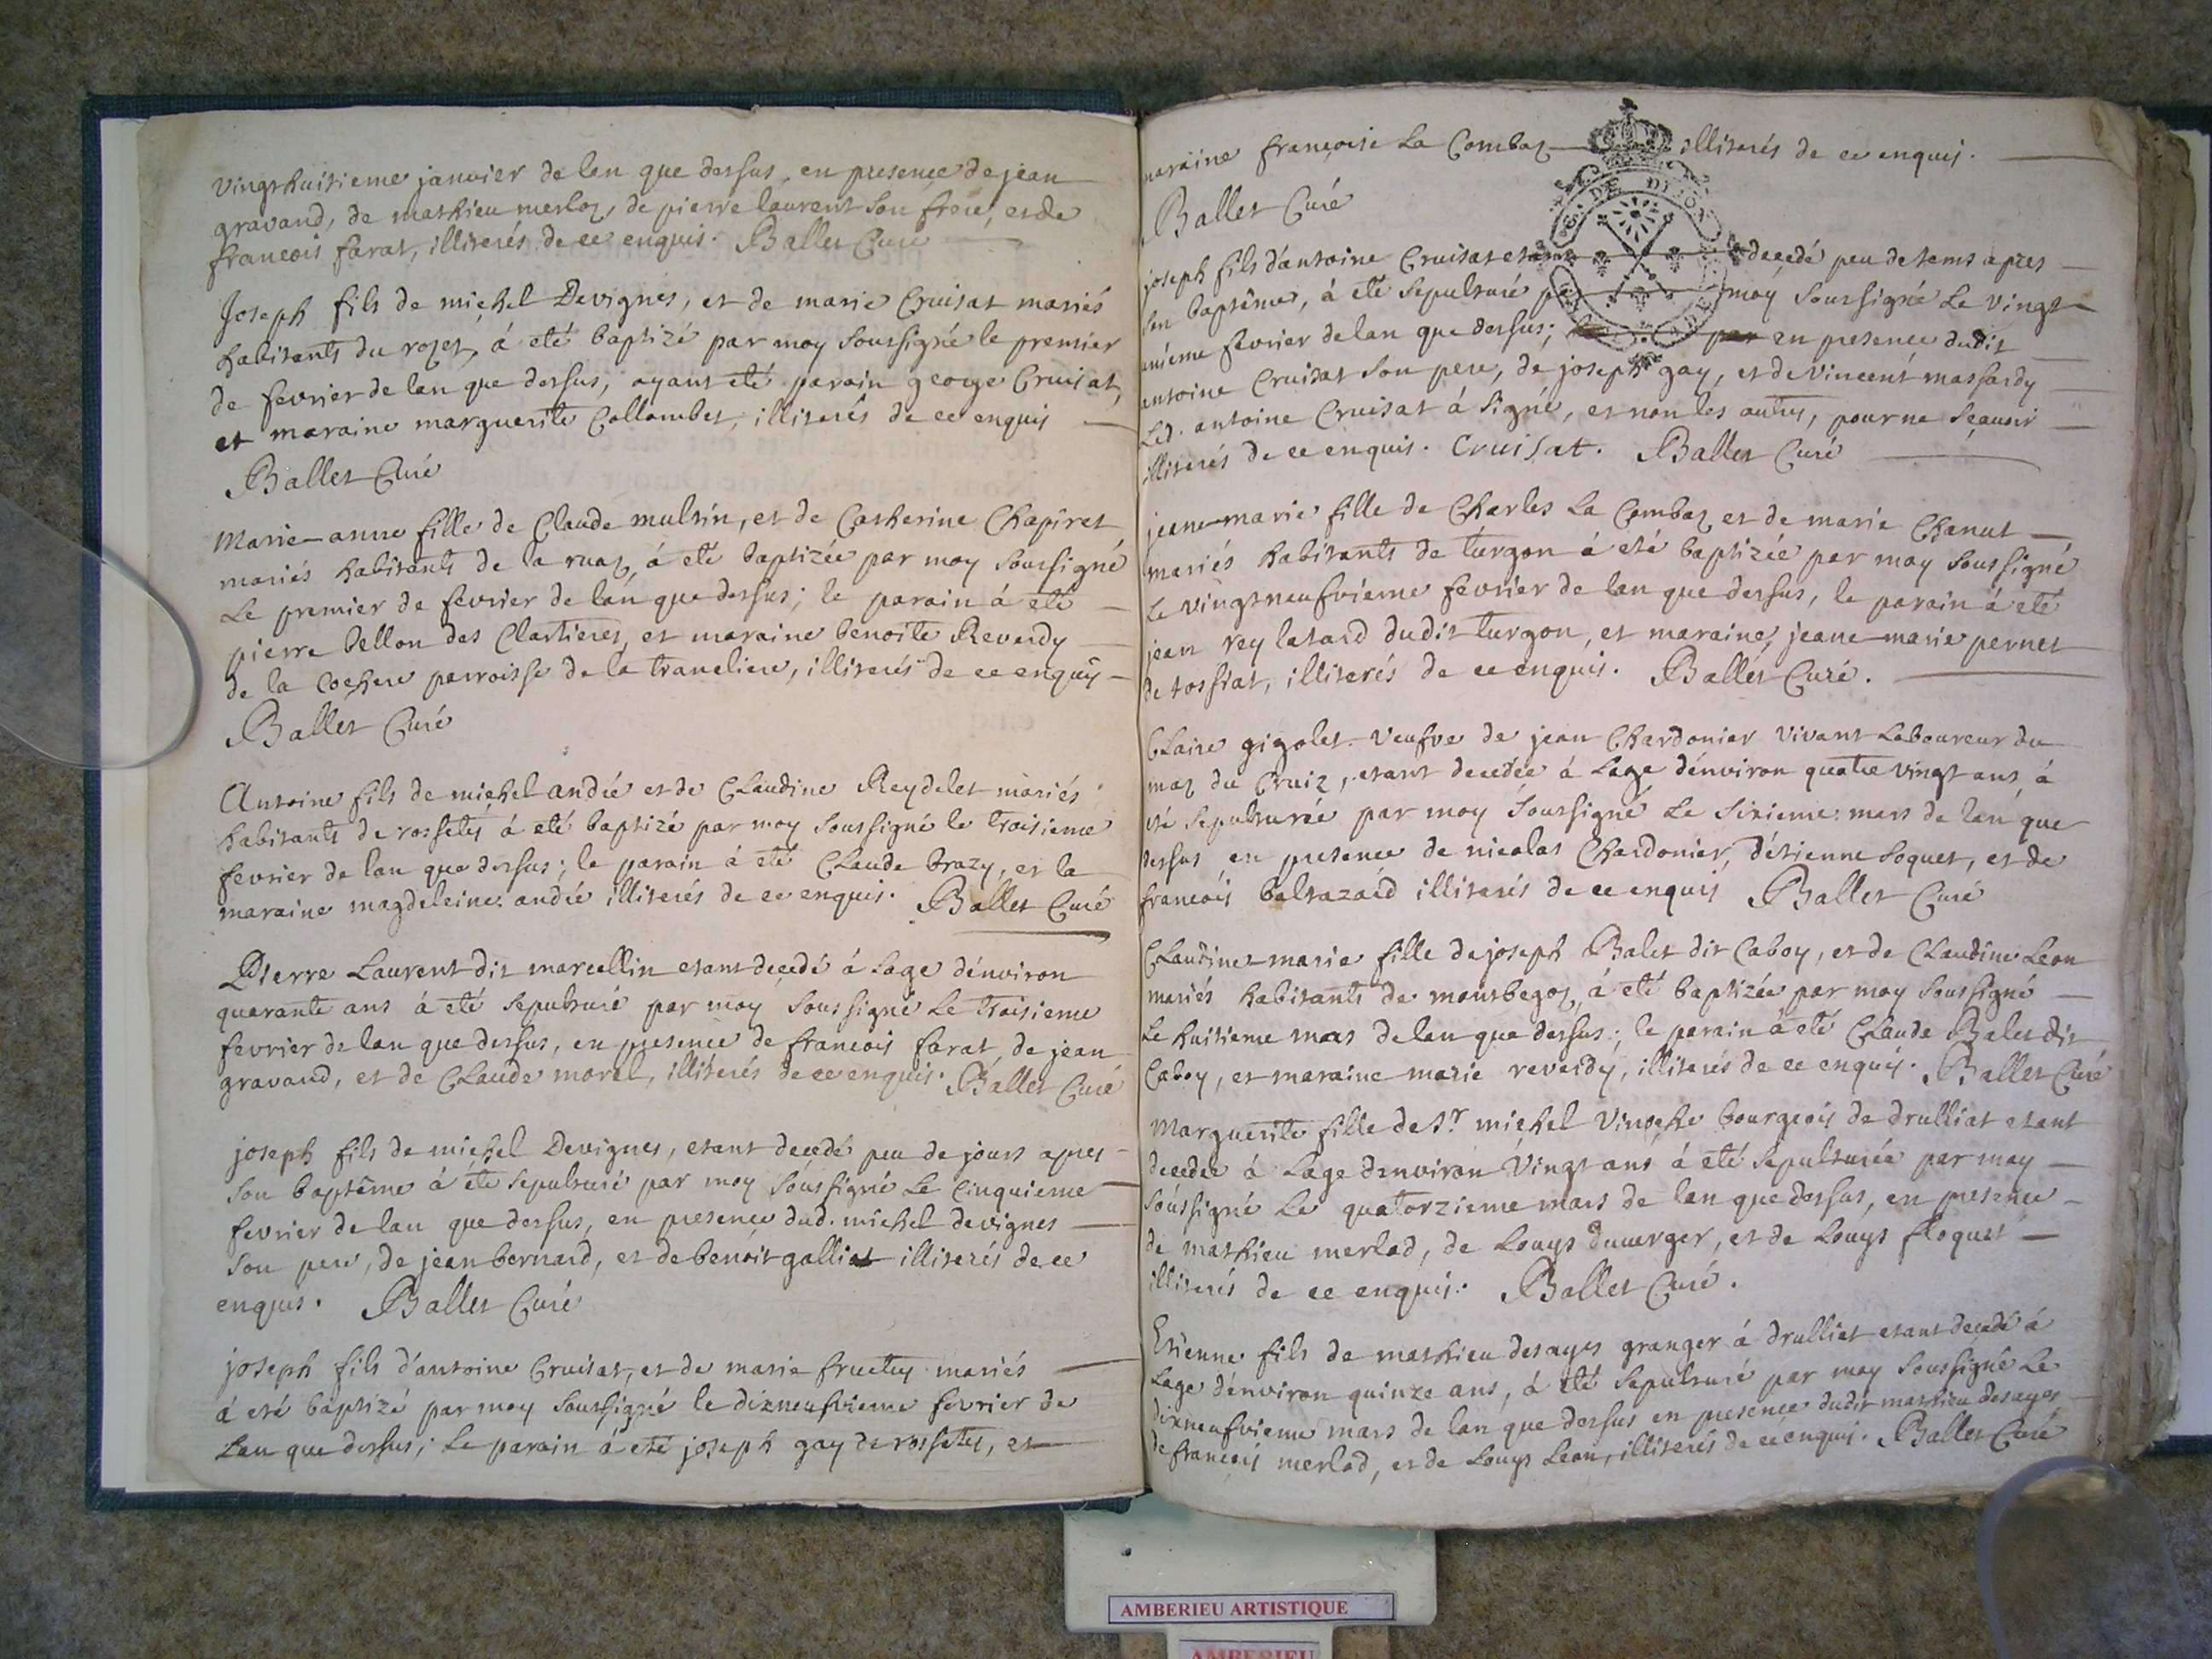 vingthuitieme janvier de lan que dessus, en presence de jean
gravand, de mathieu merloz, de pierre laurent son frere, et de
francois farat, illiterés de ce enquis. Ballet Curé
Joseph fils de michel Devignes, et de marie Cruisat mariés
habitants du rozet, à eté baptizé par moy soussigné le premier
de fevrier de lan que dessus; ayant eté parain george Cruisat,
et maraine marguerite Collombet, illiterés de ce enquis
Ballet Curé
Marie-anne fille de Claude multin, et de Catherine Chapiret
mariés habitants de la ruaz, à eté baptizée par moy soussigné
Le premier de fevrier de lan que dessus; le parain à eté
pierre bellon des Clartieres, et maraine benoite Reverdy
de la Cochere parroisse de la trancliere, illiterés de ce enquis
Ballet Curé
Antoine fils de michel andré et de Claudine Reydelet mariés
habitants de rossetys à eté baptizé par moy soussigné le troisieme
fevrier de lan que dessus; le parain à eté Claude brazy, et la
maraine magdeleine andré illiterés de ce enquis. Ballet Curé
Pierre Laurent dit marcellin etant decedé à Lage dénviron
quarante ans à eté sepulturé par moy soussigné Le troisieme
fevrier de lan que dessus, en presence de francois farat, de jean
gravand, et de Claude morel, illiterés de ce enquis. Ballet Curé
joseph fils de michel Devignes, etant decedé peu de jours apres
son baptême à été sepulturé par moy soussigné Le Cinquieme
fevrier de lan que dessus, en presence dud. michel devignes
son pere, de jean bernard, et de benoit galliat illiterés de ce
enquis. Ballet Curé
joseph fils d'antoine Cruisat, et de marie fructuy mariés
à eté baptizé par moy soussigné le dixneufvieme fevrier de
Lan que dessus; Le parain à eté joseph gay de rossetys, et
maraine françoise La Combaz illiterés de ce enquis.
Ballet Curé
joseph fils d'antoine Cruisat etant decedé peu de tems apres
son baptême, à eté sepulturé par moy soussigné Le vingt
unieme fevrier de lan que dessus; par en presence dudit
antoine Cruisat son pere, de joseph gay, et de vincent massardy
Led. antoine Cruisat à signé, et non les autres, pour ne sçavoir
illiterés de ce enquis. Cruisat. Ballet Curé
jeane-marie fille de Charles La Combaz et de marie Chanut
mariés habitants de turgon à eté baptizée par moy soussigné
Le vingtneufvieme fevrier de lan que dessus, le parain à eté
jean rey latard dudit turgon, et maraine jeane-marie pernet
de tossiat, illiterés de ce enquis. Ballet Curé.
Claire gigolet veufve de jean Chardonier vivant Laboureur du
maz du Cruiz, etant decedée à Lage dénviron quatre vingt ans, à
eté sepulturée par moy soussigné Le sixieme mars de lan que
dessus en presence de nicolas Chardonier, d'étienne soquet, et de
francois baltazard illiterés de ce enquis Ballet Curé
Claudine-marie fille de joseph Balet dit Caboy, et de Claudine Leon
mariés habitants de montbegoz, à eté baptizée par moy soussigné
Le huitieme mars de lan que dessus; le parain à eté Claude Balet dit
Caboy, et maraine marie reverdy, illiterés de ce enquis. Ballet Curé
Marguerite fille de sr. michel Vinoche bourgeois de drulliat etant
decedee à Lage denviron Vingt ans à eté sepulturée par moy
soussigné Le quatorzieme mars de lan que dessus, en presence
de mathieu merlod, de Louys duverger, et de Louys floquet
illiterés de ce enquis. Ballet Curé.
Etienne fils de mathieu desayes granger à drulliat etant decedé à
Lage dénviron quinze ans, à eté sepulturé par moy soussigné Le
dixneufvieme mars de lan que dessus en presence dudit mathieu desayes
de francois merlod, et de Louys Leon, illiterés de ce enquis. Ballet Curé
AMBERIEU ARTISTIQUE
AMBERIEU